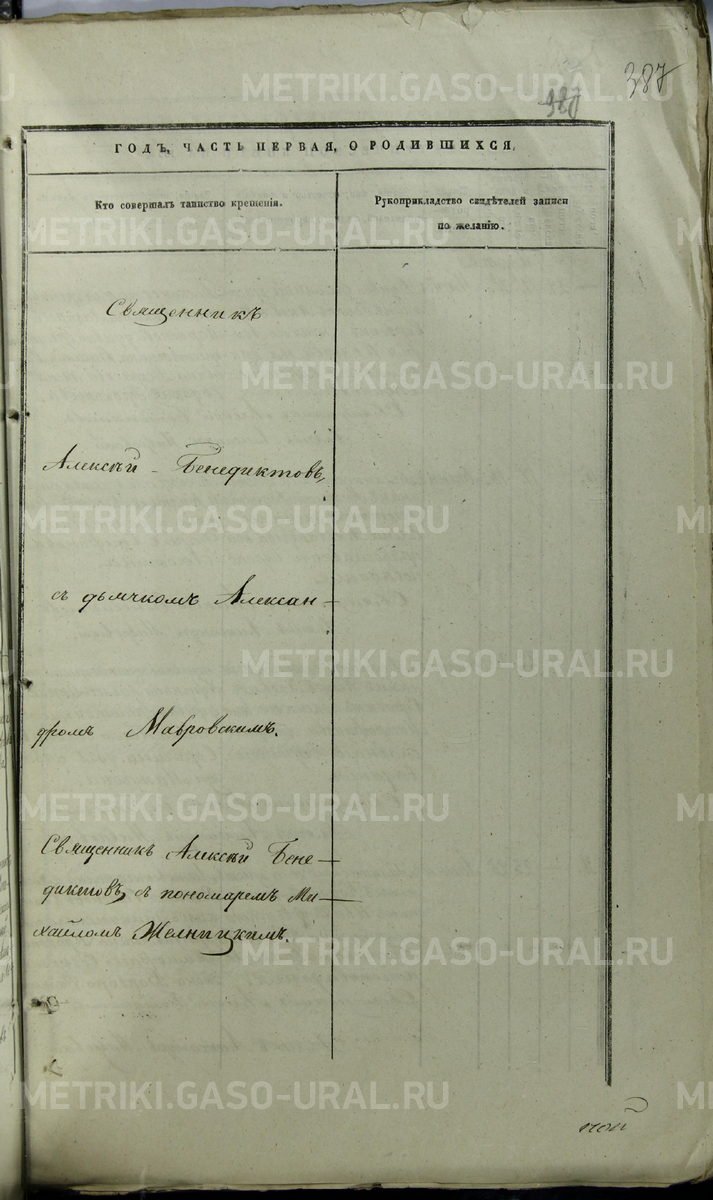 387
387
ГОДЪ, ЧАСТЬ ПЕРВАЯ, О РОДИВШИХСЯ,
Кто совершалъ таинство крещенія.
Рукоприкладство свидѣтелей записи
по желанію.
Священникъ
Алексѣй - Бенедиктовъ,
съ дьячкомъ Алексан-
дромъ Мавровскимъ.
Священникъ Алексѣй Бене-
диктовъ, съ пономаремъ Ми-
хайломъ
ной
METRIKI.GASO-URAL.RU
METRIKI.GASO-URAL.RU
METRIKI.GASO-URAL.RU
METRIKI.GASO-URAL.RU
METRIKI.GASO-URAL.RU
METRIKI.GASO-URAL.RU
METRIKI.GASO-URAL.RU
METRIKI.GASO-URAL.RU